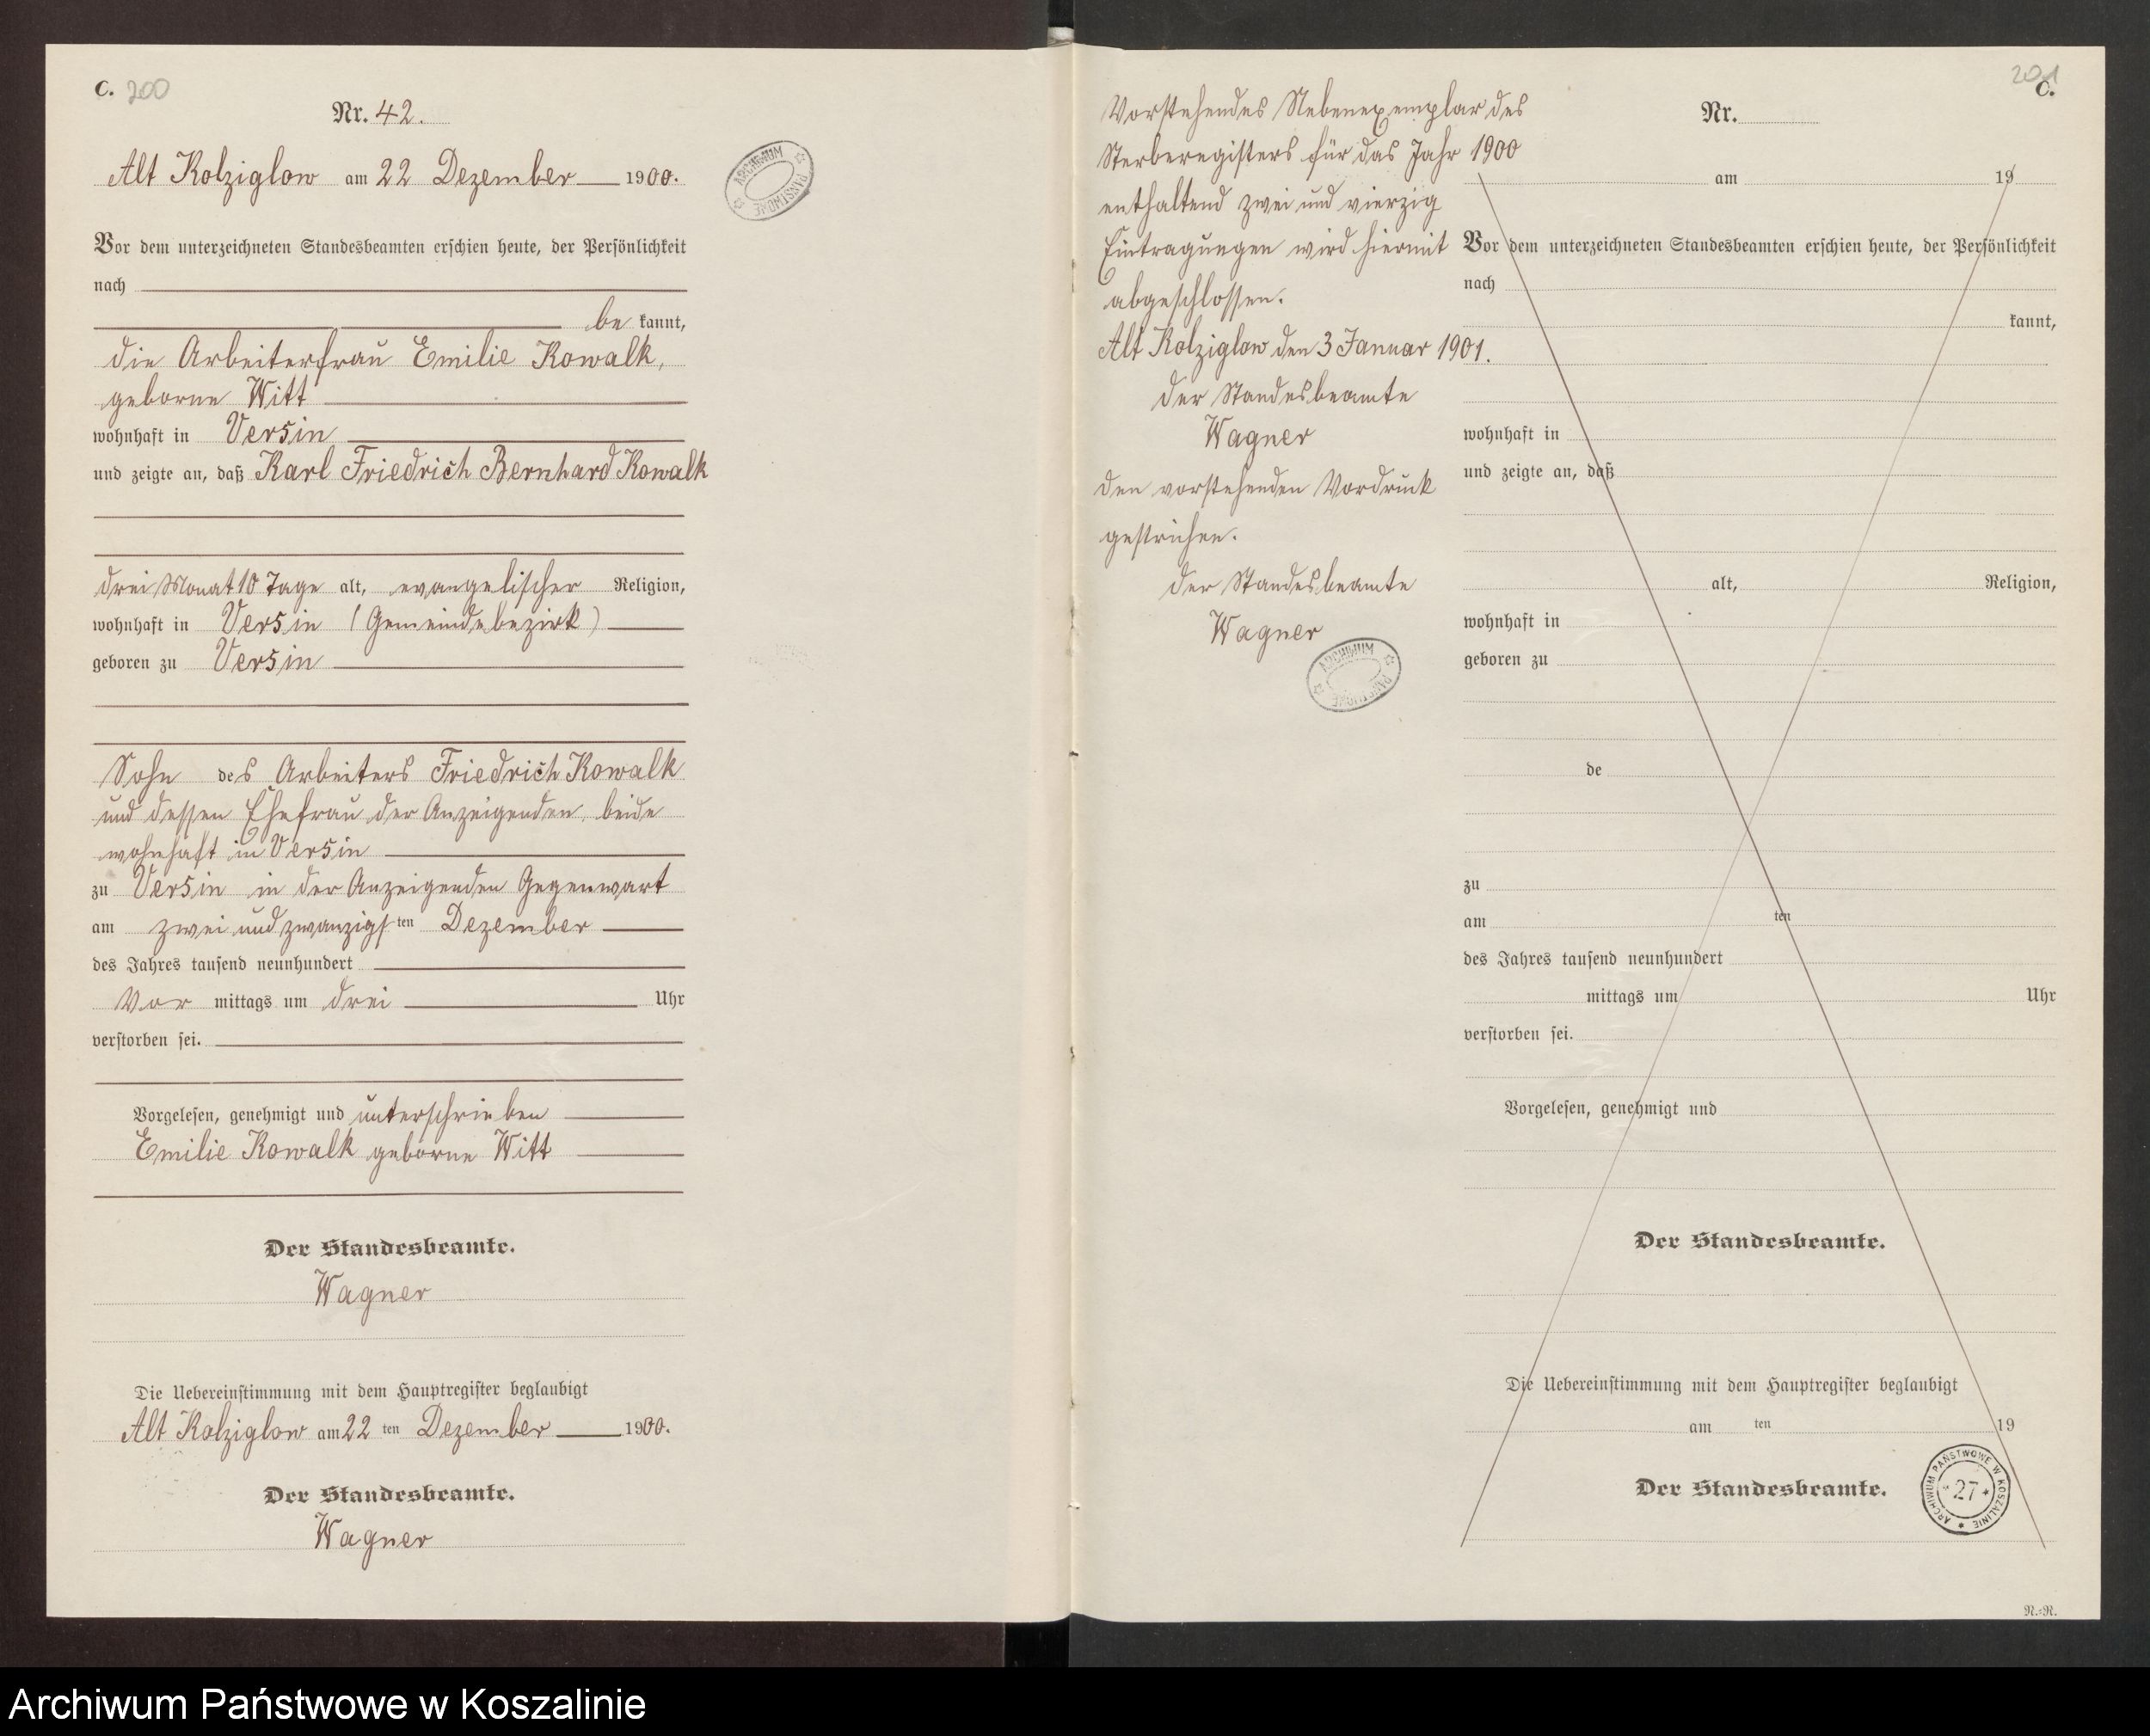 C. 200
Nr. 42.
Alt Kolziglow am 22 Dezember 1900.
Vor dem unterzeichneten Standesbeamten erschien heute, der Persönlichkeit
nach
be kannt,
die Arbeiterfrau Emilie Kowalk,
geborne Witt
wohnhaft in Versin
und zeigte an, daß Karl Friedrich Bernhard Kowalk
drei Monat 10 Tage alt, evangelischer Religion,
wohnhaft in Versin (Gemeindebezirk)
geboren zu Versin
Sohn des Arbeiters Friedrich Kowalk
und dessen Ehefrau der Anzeigenden, beide
wohnhaft in Versin
zu Versin in der Anzeigenden Gegenwart
am zwei und zwanzigsten Dezember
des Jahres tausend neunhundert
Vor mittags um drei Uhr
verstorben sei.
Vorgelesen, genehmigt und unterschrieben
Emilie Kowalk geborne Witt
Der Standesbeamte.
Wagner
Die Uebereinstimmung mit dem Hauptregister beglaubigt
Alt Kolziglow am 22 ten Dezember 1900.
Der Standesbeamte.
Wagner
ARCHIWUM PAŃSTWOWE
Vorstehendes Nebenexemplar des
Sterberegisters für das Jahr 1900
enthaltend zwei und vierzig
Eintragungen wird hiermit
abgeschlossen.
Alt Kolziglow den 3 Januar 1901.
Der Standesbeamte
Wagner
Den vorstehenden Vordruck
gestrichen.
Der Standesbeamte
Wagner
ARCHIWUM PAŃSTWOWE
201
C.
Nr.
am 19
Vor dem unterzeichneten Standesbeamten erschien heute, der Persönlichkeit
nach
kannt,
wohnhaft in
und zeigte an, daß
alt, Religion,
wohnhaft in
geboren zu
de
zu
am ten
des Jahres tausend neunhundert
mittags um Uhr
verstorben sei.
Vorgelesen, genehmigt und
Der Standesbeamte.
Die Uebereinstimmung mit dem Hauptregister beglaubigt
am ten 19
Der Standesbeamte.
ARCHIWUM PAŃSTWOWE W KOSZALINIE
27
N.-N.
Archiwum Państwowe w Koszalinie